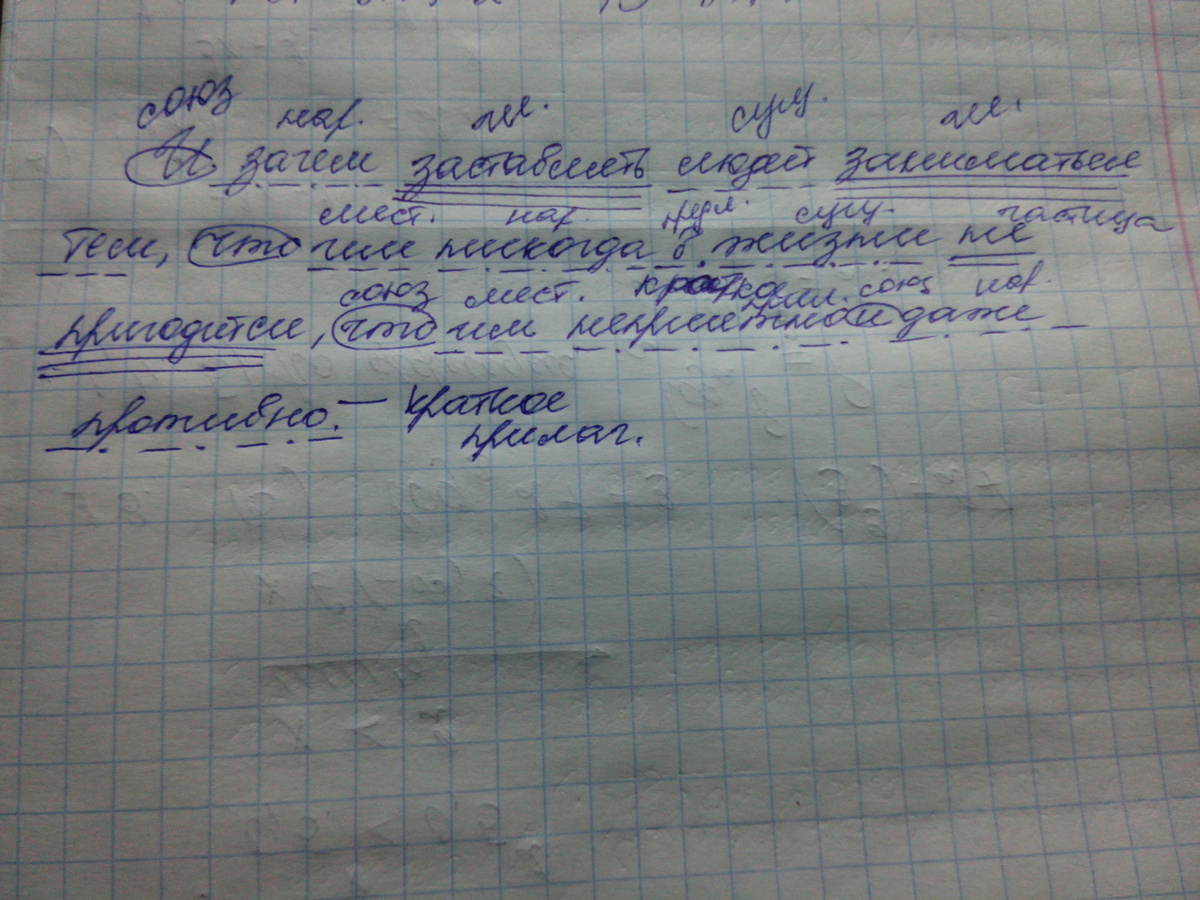 союз нар. гл. сущ. гл.
И зачем заставлять людей заниматься
мест. нар. предл. сущ. частица
тем, что им никогда в жизни не
союз мест. кратко прил. союз нар.
пригодится, что им неприятно и даже
противно. — краткое
прилаг.